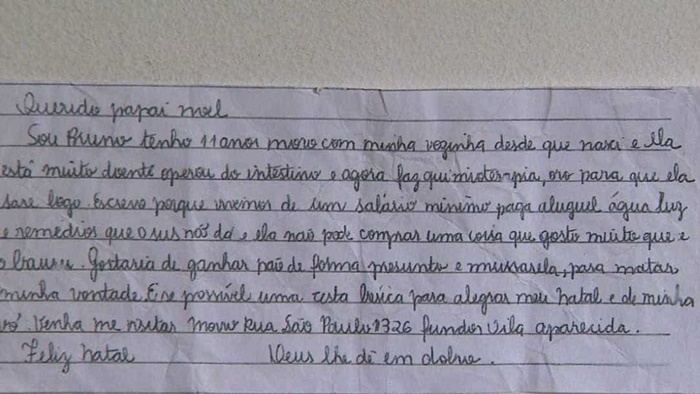 Querido papai noel
Sou Bruno tenho 11 anos moro com minha vozinha desde que nasci e ela
está muito doente operou do intestino e agora faz quimioterapia, oro para que ela
sare logo. Escrevo porque vivemos de um salário minimo paga aluguel água luz
e remedios que o sus nós dá e ela não pode comprar uma coisa que gosto muito que e
o bauru. Gostaria de ganhar paõ de forma presunto e mussarela, para matar
minha vontade. E se possivel uma cesta básica para alegrar meu natal e de minha
vó. Venha me visitar Moro Rua São Paulo 1326 fundos Vila aparecida.
Feliz natal Deus lhe dê em dobro.